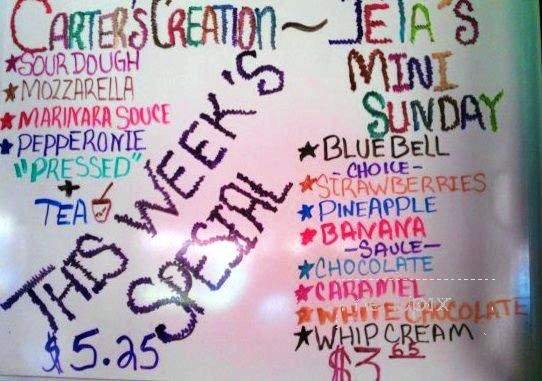 CARTER'S CREATION ~ JETA'S
MINI
SUNDAY
SOURDOUGH
MOZZARELLA
MARINARA SOUCE
PEPPERONIE
"PRESSED"
+
TEA
THIS WEEK'S
SPESIAL
$5.25
BLUE BELL
-CHOICE-
STRAWBERRIES
PINEAPPLE
BANANA
-SAUCE-
CHOCOLATE
CARAMEL
WHITE CHOCOLATE
WHIP CREAM
$3.65